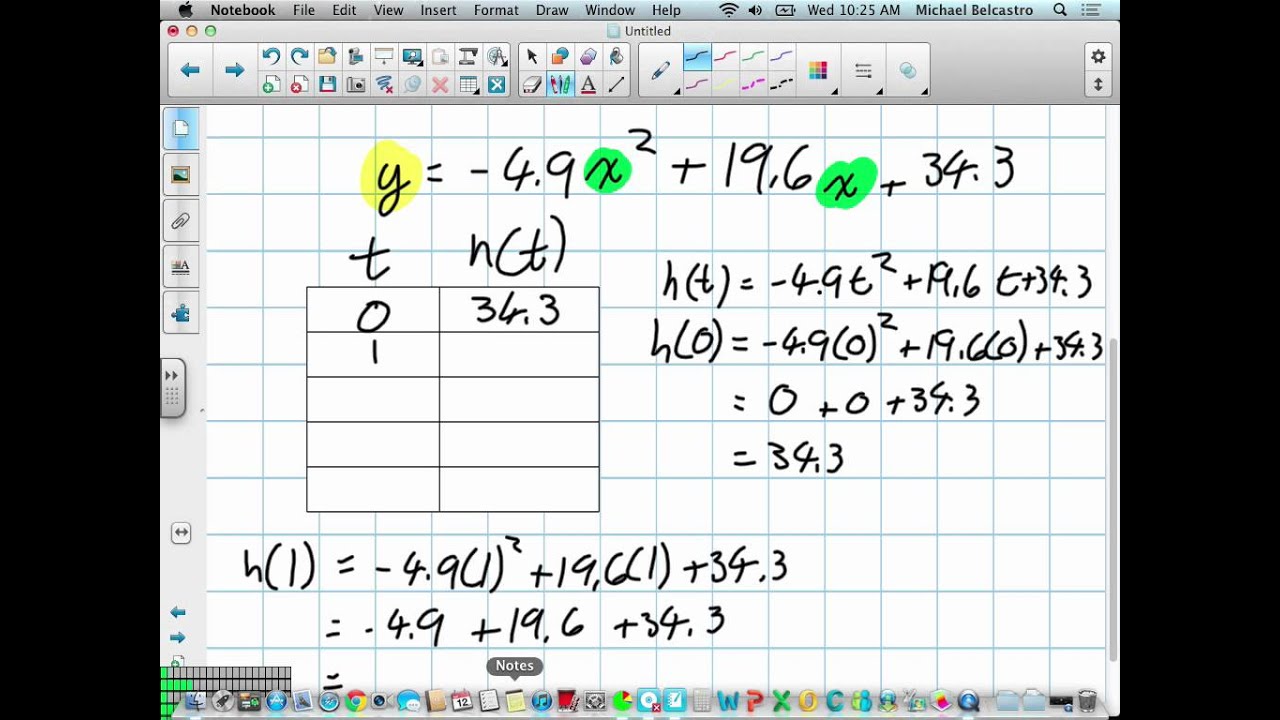 Notebook File Edit View Insert Format Draw Window Help Wed 10:25 AM Michael Belcastro
Untitled
y = -4.9x² + 19.6x + 34.3
t h(t)
0 34.3
1
h(t) = -4.9t² + 19.6t + 34.3
h(0) = -4.9(0)² + 19.6(0) + 34.3
= 0 + 0 + 34.3
= 34.3
h(1) = -4.9(1)² + 19.6(1) + 34.3
= -4.9 + 19.6 + 34.3
=
Notes